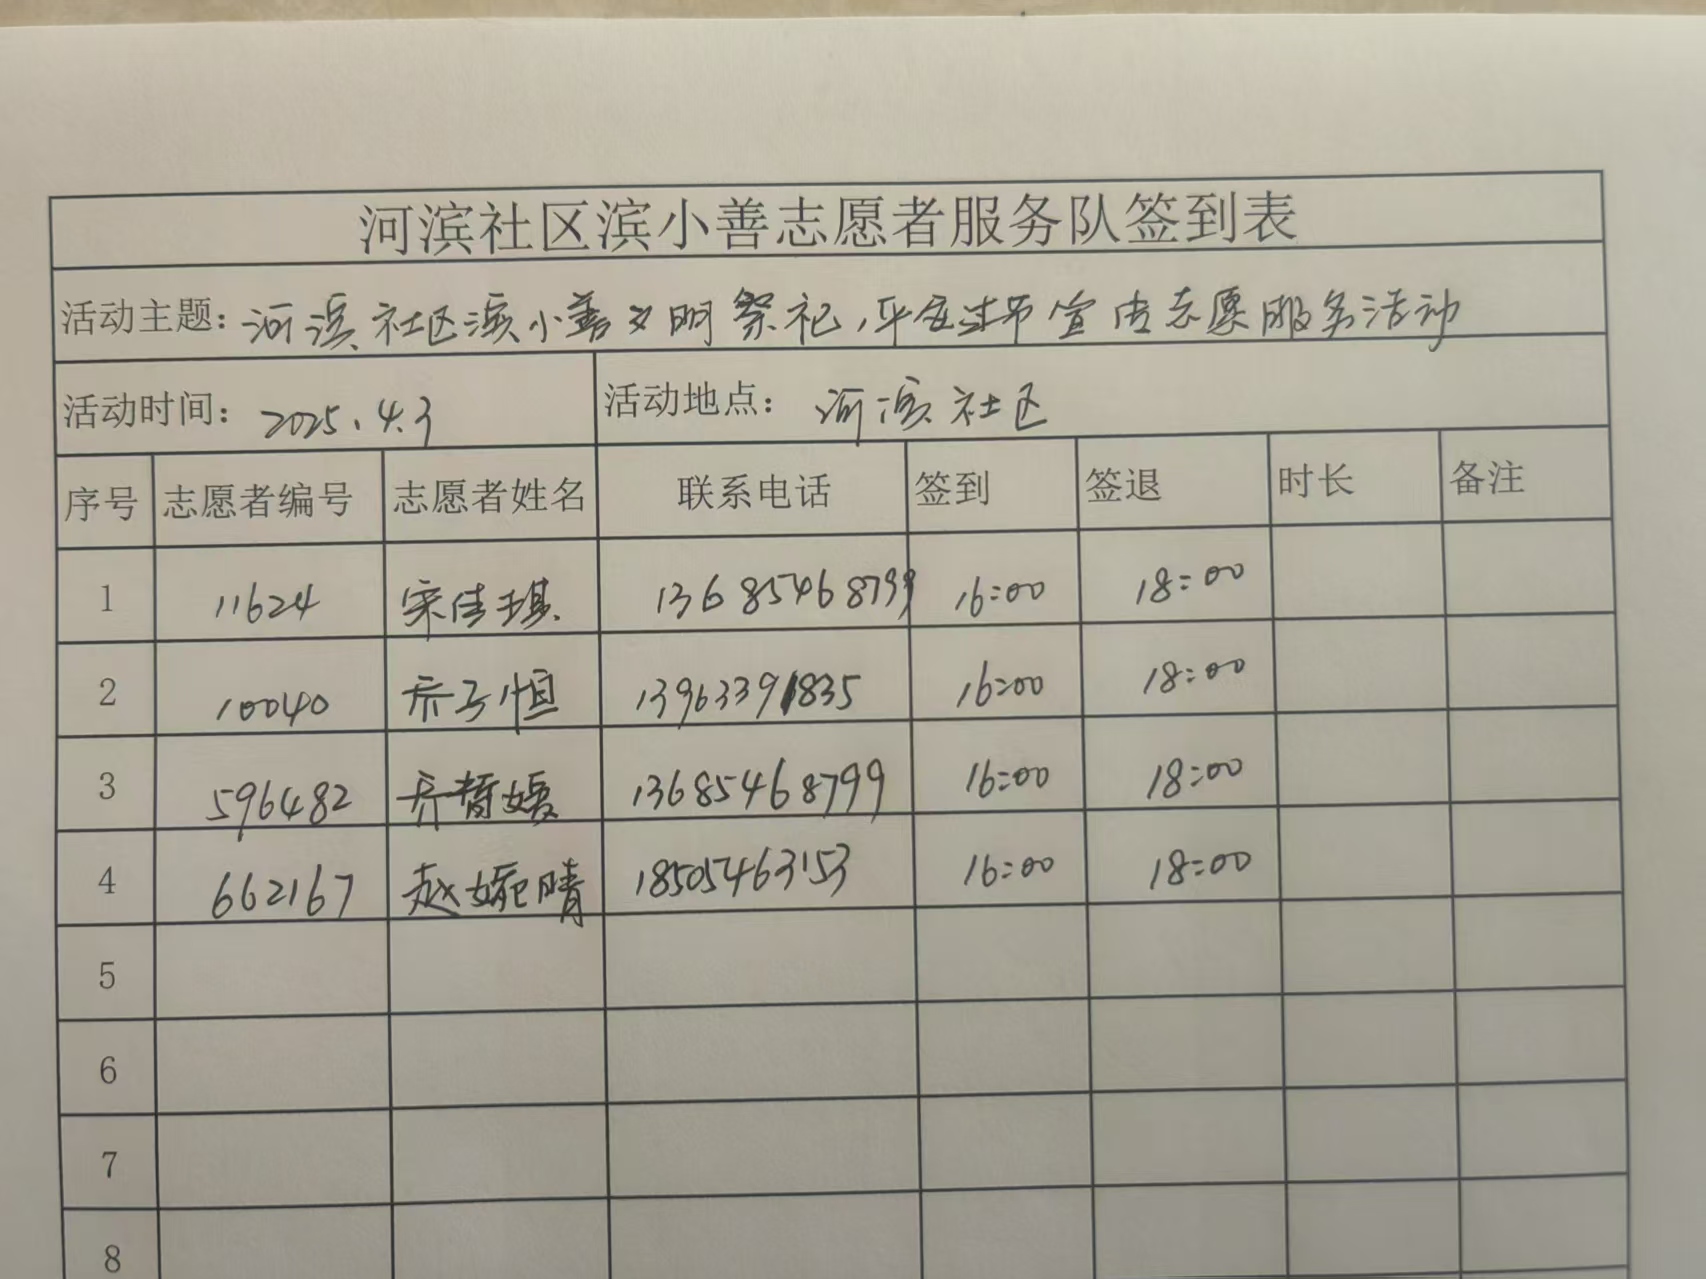 河滨社区滨小善志愿者服务队签到表
活动主题：河滨社区滨小善文明祭祀，平安过节宣传志愿服务活动
活动时间：2025.4.3 活动地点：河滨社区
序号 志愿者编号 志愿者姓名 联系电话 签到 签退 时长 备注
1 11624 宋佳琪 13685468799 16:00 18:00
2 10040 乔子恒 13963391835 16:00 18:00
3 596482 乔哲媛 13685468799 16:00 18:00
4 662167 赵婉晴 18505463153 16:00 18:00
5
6
7
8